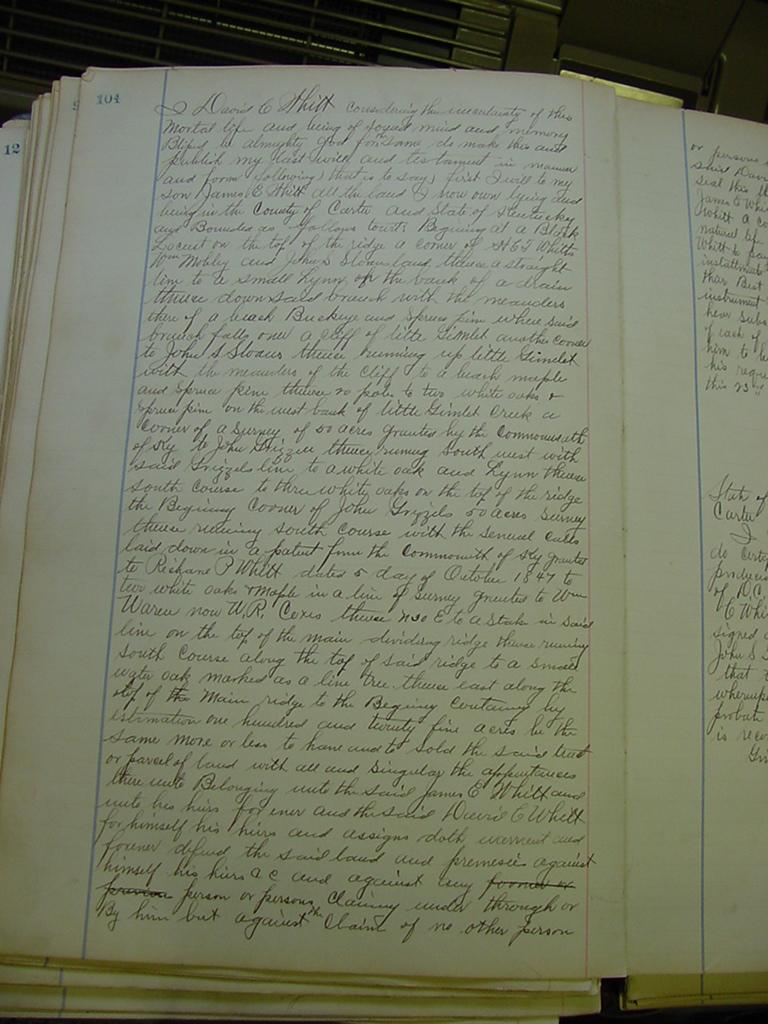 104
12
I David C Whitt considering the uncertainty of this
Mortal life and being of sound mind and memory
Blessed be almighty god for same do make this and
publish my last will and testament in manner
and form following (that is to say) first I will to my
son James E Whitt all the land I now own lying and
being in the County of Carter and State of Kentucky
and Bounded as follows towit: Begining at a Black
Locust on the top of the ridge a corner of Whitts
Wm Mobley and John S Sloan land thence a straight
line to a small Lynn, on the bank of a drain
thence down said branch with the meanders
there of a beach Buckeye and spruce pine where said
branch falls over a cliff of little Gimlet another corner
to John S Sloans thence running up little Gimlet
with the meanders of the cliff to a beach maple
and spruce pine thence 20 poles to two white oaks &
spruce pine on the west bank of little Gimlet Creek a
corner of a Survey of 50 acres granted by the Commonwealth
of Ky to John Grizzel thence runing South west with
said Grizzels line to a white oak and Lynn thence
South Course to three white oaks on the top of the ridge
the Begining Cooner of John Grizzels 50 acres Survey
thence running South Course with the several Calls
laid down in a patent from the Commonwth of Ky granted
to Whitt dated 5 day of October 1847 to
two white oaks & maple in a line of survey granted to Wm
Waren now W.R. Coxes thence N30 E to a Stake in said
line on the top of the main dividing ridge thence runing
South Course along the top of said ridge to a small
water oak marked as a line tree thence east along the
top of the Main ridge to the Begining Containing by
estimation one hundred and twenty five acres be the
same more or less to have and to hold the said tract
or parcel of land with all and Singular the appurtances
there unto Belonging unto the said James E Whitt and
unto his hiers for ever and the said David C Whitt
for himself his hiers and assigns doth warrent and
forever defend the said land and premesies against
himself his hiers &c and against any
person or persons Claiming under through or
By him but against the Claim of no other person
or persons
said Davi
seal this
James E Whi
Whitt a co
natural life
Whitt to pay
installments
than Best
instrument
here subs
of each of
him to be
his reque
this 23
State of
Carter
I
do certi
produced
of D.C.
C Whi
signed
John S
that
whereupo
probate
is reco
Gi